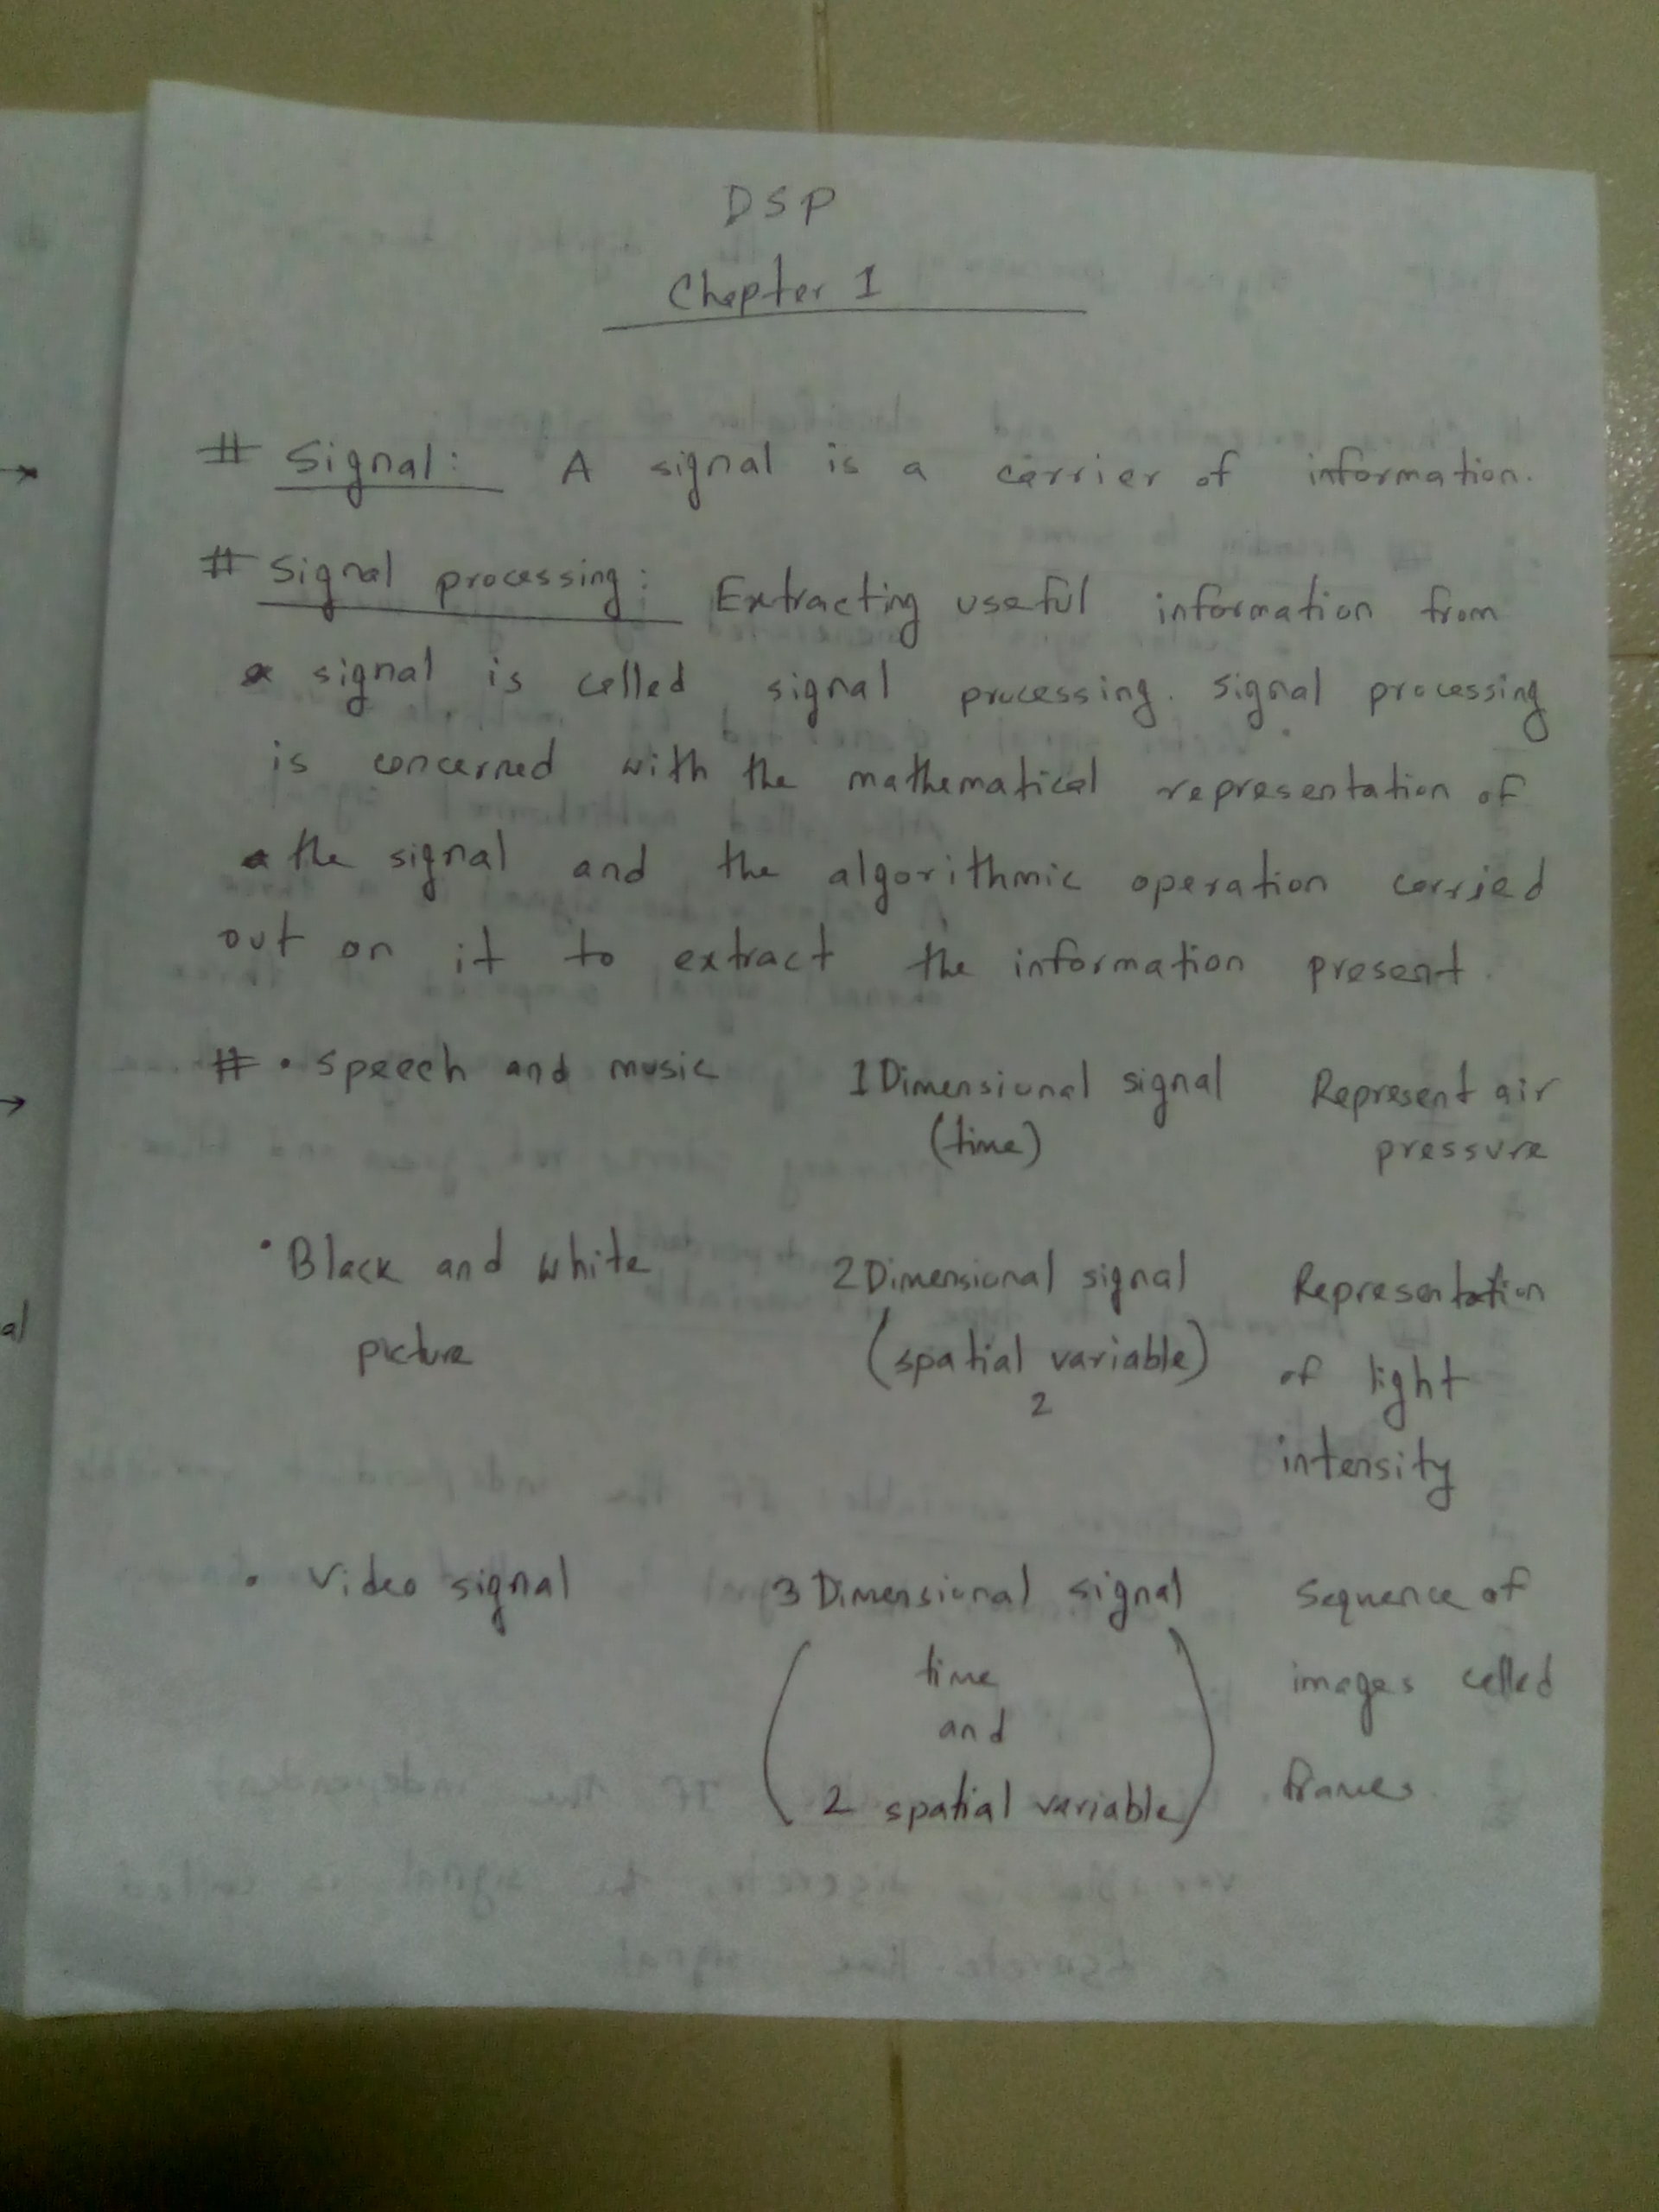 DSP
Chapter 1
# Signal: A signal is a carrier of information.
# Signal processing: Extracting useful information from
a signal is called signal processing. Signal processing
is concerned with the mathematical representation of
the signal and the algorithmic operation carried
out on it to extract the information present.
# • Speech and music 1 Dimensional signal Represent air
(time) pressure
• Black and white 2 Dimensional signal Representation
picture (spatial variable) of light
2
intensity
• Video signal 3 Dimensional signal Sequence of
time images called
and
2 spatial variable frames.
al